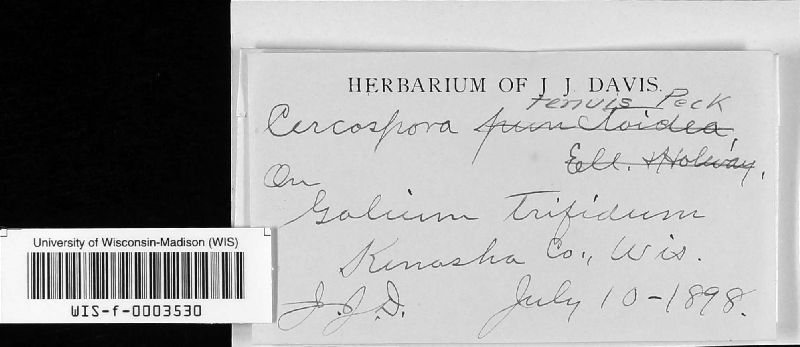 HERBARIUM OF J. J. DAVIS.
tenuis Peck
Cercospora punctoidea,
Ell. & Holway.
On
Galium trifidum
Kenosha Co., Wis.
J.J.D. July 10-1898.
University of Wisconsin-Madison (WIS)
WIS-f-0003530